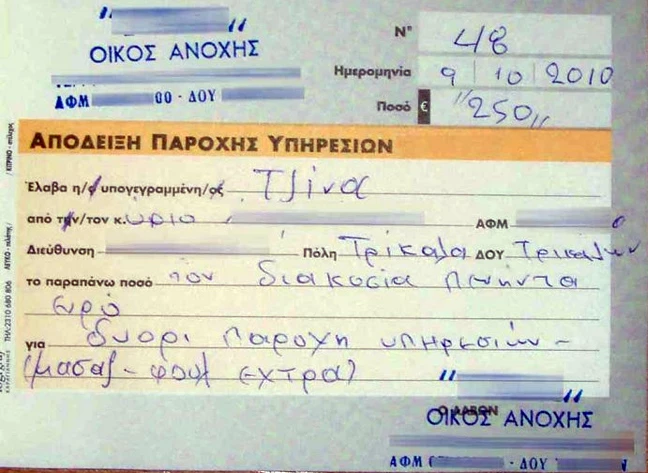 ΟΙΚΟΣ ΑΝΟΧΗΣ
ΑΦΜ 00 - ΔΟΥ
Ν° 48
Ημερομηνία 9 10 2010
Ποσό € "250"
ΑΠΟΔΕΙΞΗ ΠΑΡΟΧΗΣ ΥΠΗΡΕΣΙΩΝ
Έλαβα η/ο υπογεγραμμένη/ος Τζίνα
από την/τον κ. ύριο ΑΦΜ 0
Διεύθυνση Πόλη Τρίκαλα ΔΟΥ Τρικάλων
το παραπάνω ποσό των διακόσια πενήντα
ευρώ
για δυορι παροχη υπηρεσιών -
(μασαζ - φουλ εχτρα)
Ο ΛΑΒΩΝ
ΟΙΚΟΣ ΑΝΟΧΗΣ
ΑΦΜ - ΔΟΥ